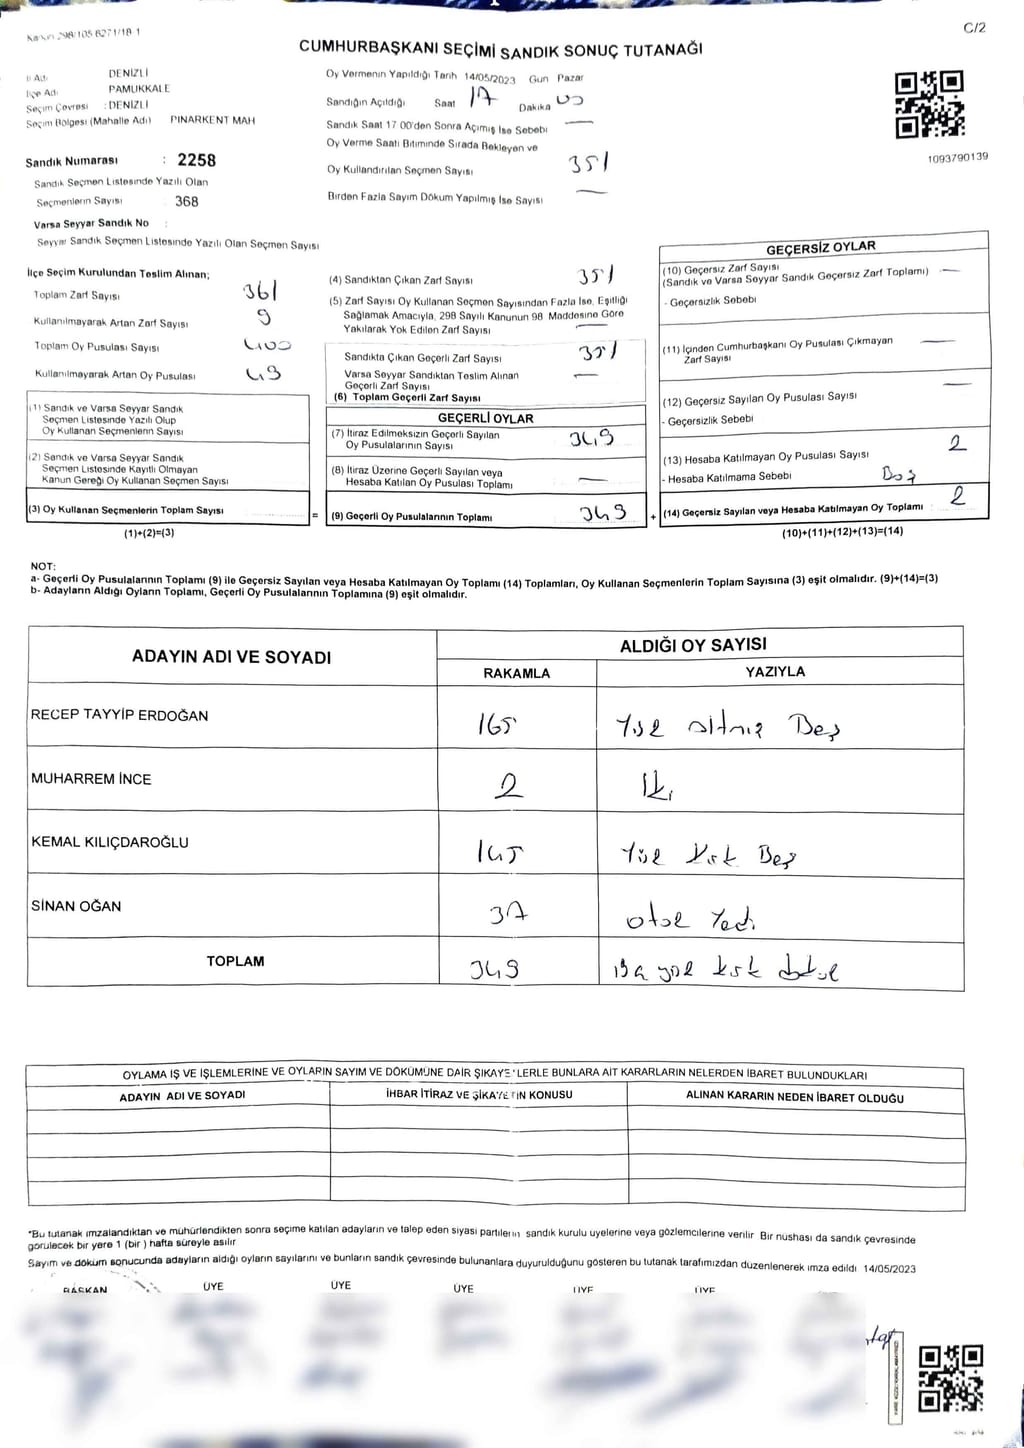 C/2
CUMHURBAŞKANI SEÇİMİ SANDIK SONUÇ TUTANAĞI
İl Adı : DENİZLİ
İlçe Adı : PAMUKKALE
Seçim Çevresi : DENİZLİ
Seçim Bölgesi (Mahalle Adı) PINARKENT MAH
Sandık Numarası : 2258
Sandık Seçmen Listesinde Yazılı Olan
Seçmenlerin Sayısı 368
Varsa Seyyar Sandık No :
Seyyar Sandık Seçmen Listesinde Yazılı Olan Seçmen Sayısı
Oy Vermenin Yapıldığı Tarih 14/05/2023 Gün Pazar
Sandığın Açıldığı Saat 17 Dakika 00
Sandık Saat 17 00'den Sonra Açımış İse Sebebi —
Oy Verme Saati Bitiminde Sırada Bekleyen ve
Oy Kullandırılan Seçmen Sayısı 351
Birden Fazla Sayım Döküm Yapılmış İse Sayısı —
1093790139
İlçe Seçim Kurulundan Teslim Alınan;
Toplam Zarf Sayısı 361
Kullanılmayarak Artan Zarf Sayısı 9
Toplam Oy Pusulası Sayısı 400
Kullanılmayarak Artan Oy Pusulası 49
(1) Sandık ve Varsa Seyyar Sandık
Seçmen Listesinde Yazılı Olup
Oy Kullanan Seçmenlerin Sayısı
(2) Sandık ve Varsa Seyyar Sandık
Seçmen Listesinde Kayıtlı Olmayan
Kanun Gereği Oy Kullanan Seçmen Sayısı
(3) Oy Kullanan Seçmenlerin Toplam Sayısı =
(1)+(2)=(3)
(4) Sandıktan Çıkan Zarf Sayısı 351
(5) Zarf Sayısı Oy Kullanan Seçmen Sayısından Fazla İse, Eşitliği
Sağlamak Amacıyla, 298 Sayılı Kanunun 98 Maddesine Göre
Yakılarak Yok Edilen Zarf Sayısı —
Sandıkta Çıkan Geçerli Zarf Sayısı 351
Varsa Seyyar Sandıktan Teslim Alınan —
Geçerli Zarf Sayısı
(6) Toplam Geçerli Zarf Sayısı
GEÇERLİ OYLAR
(7) İtiraz Edilmeksizin Geçerli Sayılan
Oy Pusulalarının Sayısı 349
(8) İtiraz Üzerine Geçerli Sayılan veya
Hesaba Katılan Oy Pusulası Toplamı —
(9) Geçerli Oy Pusulalarının Toplamı 349 +
GEÇERSİZ OYLAR
(10) Geçersiz Zarf Sayısı
(Sandık ve Varsa Seyyar Sandık Geçersiz Zarf Toplamı) —
- Geçersizlik Sebebi
(11) İçinden Cumhurbaşkanı Oy Pusulası Çıkmayan
Zarf Sayısı —
(12) Geçersiz Sayılan Oy Pusulası Sayısı —
- Geçersizlik Sebebi
(13) Hesaba Katılmayan Oy Pusulası Sayısı 2
- Hesaba Katılmama Sebebi Boş
(14) Geçersiz Sayılan veya Hesaba Katılmayan Oy Toplamı : 2
(10)+(11)+(12)+(13)=(14)
NOT:
a- Geçerli Oy Pusulalarının Toplamı (9) ile Geçersiz Sayılan veya Hesaba Katılmayan Oy Toplamı (14) Toplamları, Oy Kullanan Seçmenlerin Toplam Sayısına (3) eşit olmalıdır. (9)+(14)=(3)
b- Adayların Aldığı Oyların Toplamı, Geçerli Oy Pusulalarının Toplamına (9) eşit olmalıdır.
ADAYIN ADI VE SOYADI ALDIĞI OY SAYISI
RAKAMLA YAZIYLA
RECEP TAYYİP ERDOĞAN 165 Yüz altmış Beş
MUHARREM İNCE 2 İki
KEMAL KILIÇDAROĞLU 145 Yüz Kırk Beş
SİNAN OĞAN 37 otuz Yedi
TOPLAM 349 yüz kırk dokuz
OYLAMA İŞ VE İŞLEMLERİNE VE OYLARIN SAYIM VE DÖKÜMÜNE DAİR ŞİKAYETLERLE BUNLARA AİT KARARLARIN NELERDEN İBARET BULUNDUKLARI
ADAYIN ADI VE SOYADI İHBAR İTİRAZ VE ŞİKAYETİN KONUSU ALINAN KARARIN NEDEN İBARET OLDUĞU
*Bu tutanak imzalandıktan ve mühürlendikten sonra seçime katılan adayların ve talep eden siyasi partilerin sandık kurulu uyelerine veya gözlemcilerine verilir Bir nushası da sandık çevresinde
görülecek bir yere 1 (bir ) hafta süreyle asılır
Sayım ve döküm sonucunda adayların aldığı oyların sayılarını ve bunların sandık çevresinde bulunanlara duyurulduğunu gösteren bu tutanak tarafımızdan düzenlenerek imza edildi 14/05/2023
BAŞKAN ÜYE ÜYE ÜYE ÜYE ÜYE